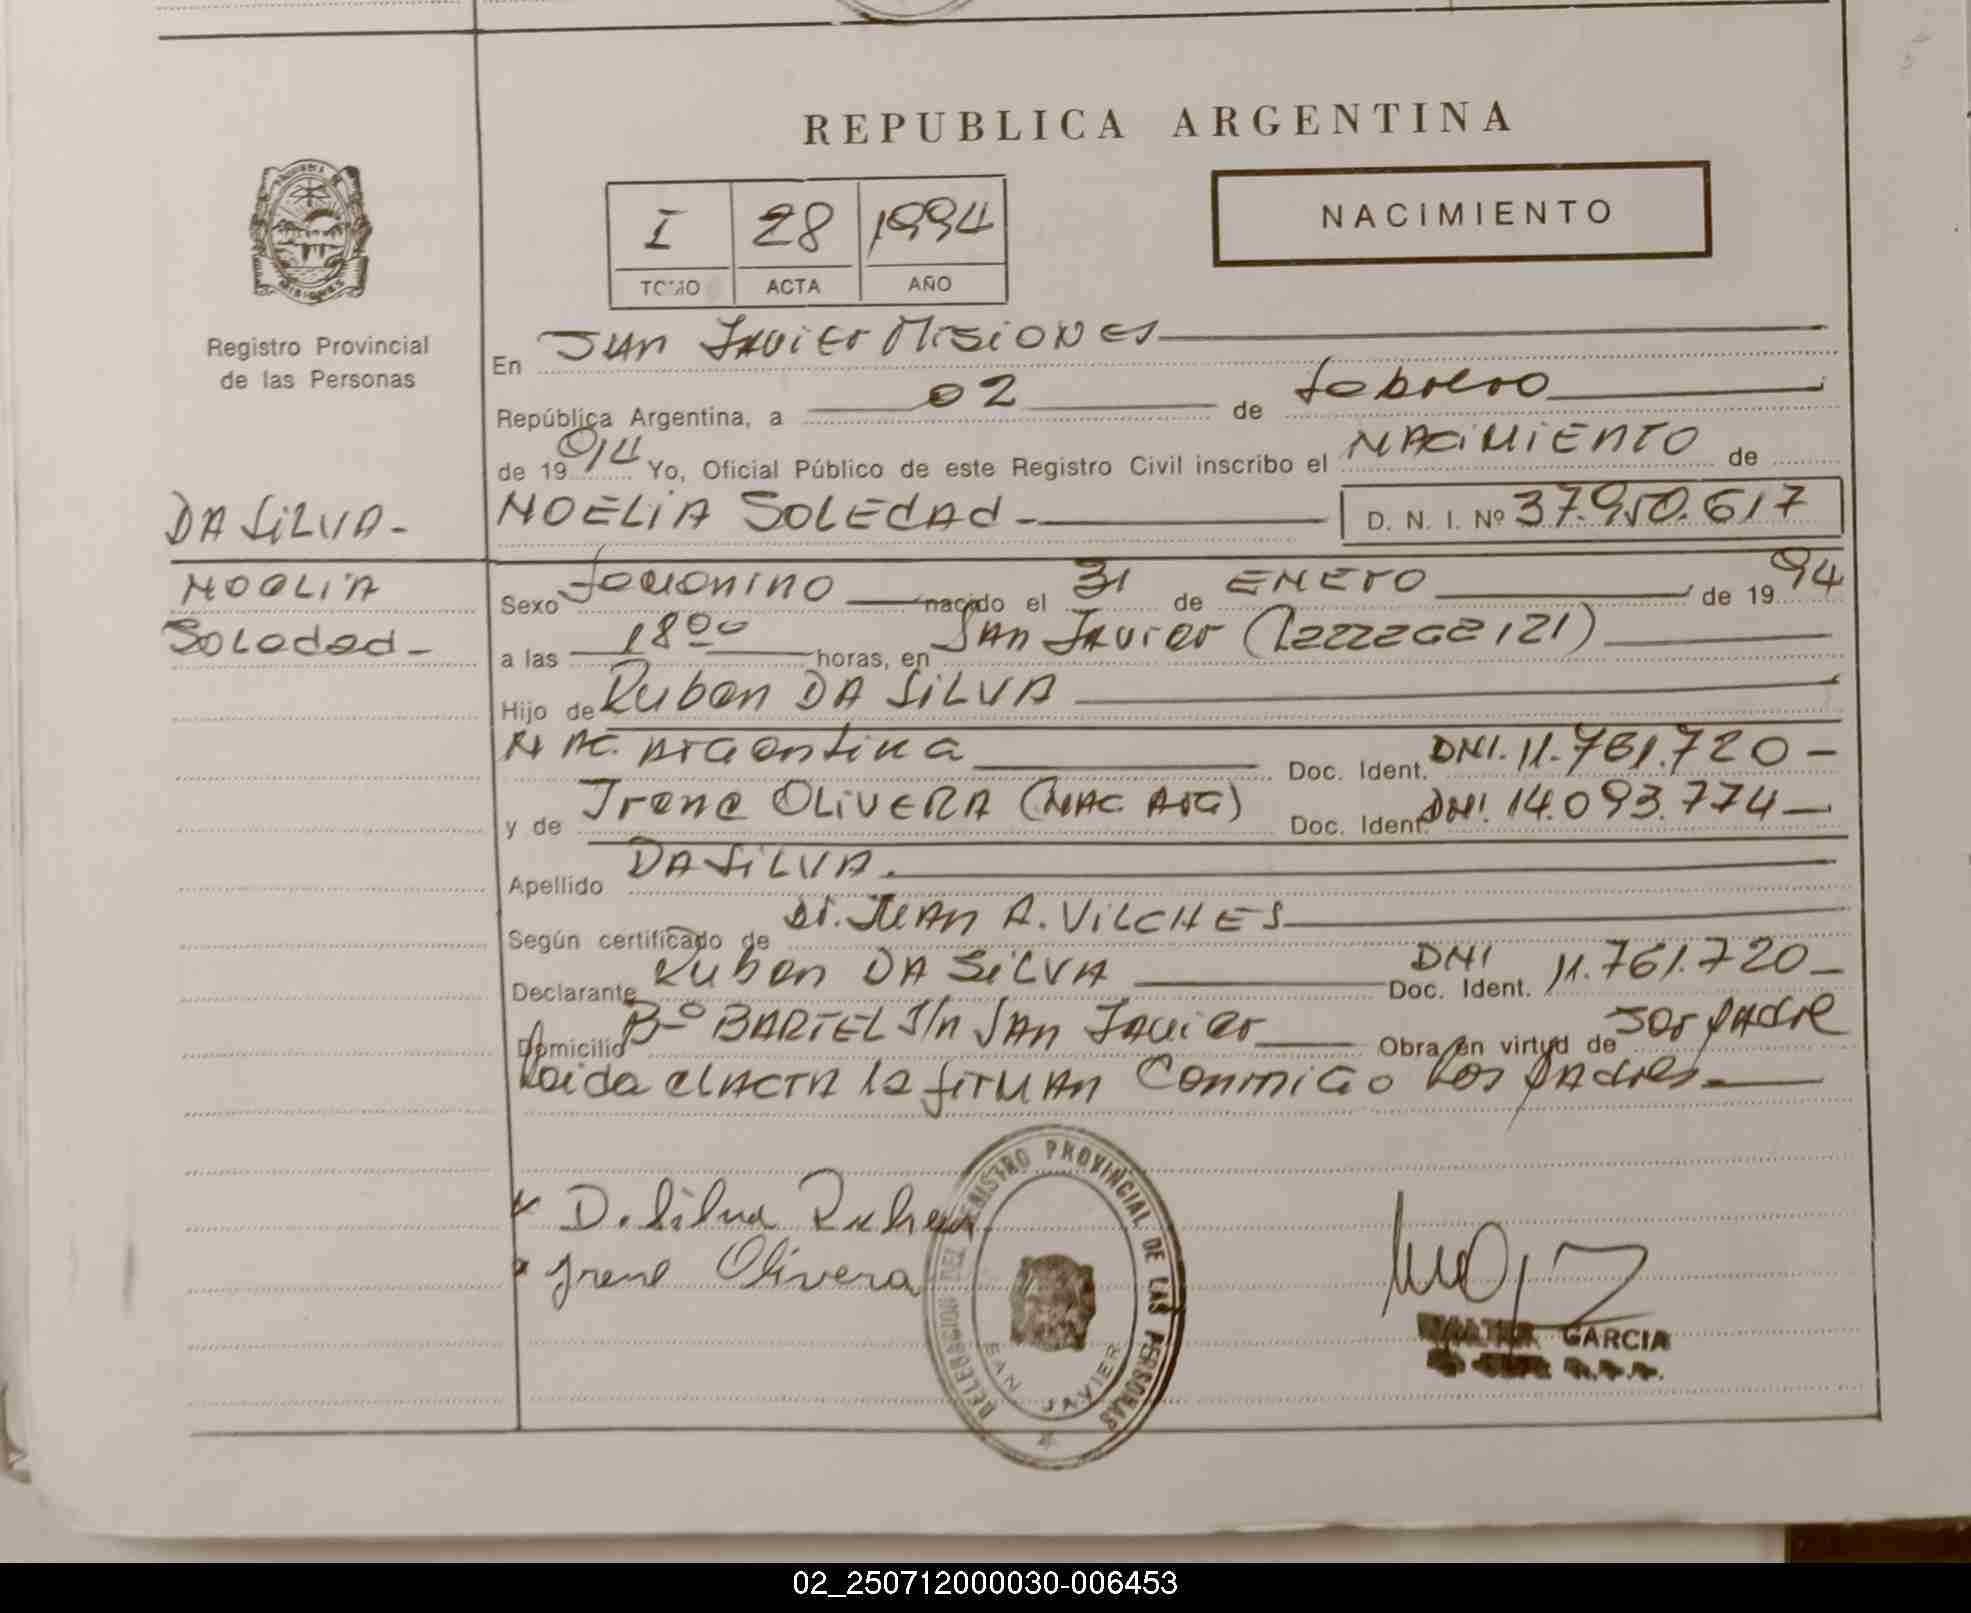 REPUBLICA ARGENTINA
NACIMIENTO
I 28 1994
TOMO ACTA AÑO
MISIONES
Registro Provincial
de las Personas
En San Javier Misiones
República Argentina, a 02 de febrero
de 1994 Yo, Oficial Público de este Registro Civil inscribo el NACIMIENTO de
DA SILVA- NOELIA SOLEDAD- D. N. I. Nº 37.950.617
NOELIA
Soledad-
Sexo femenino nacido el 31 de ENERO de 1994
a las 18 00 horas, en San Javier
Hijo de Ruben DA SILVA
NAC. Argentina Doc. Ident. DNI. 11.761.720-
y de Irene OLIVERA (NAC. ARG) Doc. Ident. DNI. 14.093.774-
Apellido DA SILVA.
Según certificado de Dr. JUAN A. VILCHES
Declarante Ruben DA SILVA DNI Doc. Ident. 11.761.720-
Domicilio Bº BARTEL S/n San Javier Obra en virtud de ser padre
Leida el ACTA la firman Conmigo los padres-
D. Silva Ruben
Irene Olivera
DELEGACION DEL REGISTRO PROVINCIAL DE LAS PERSONAS
SAN JAVIER
WALTER GARCIA
02_250712000030-006453